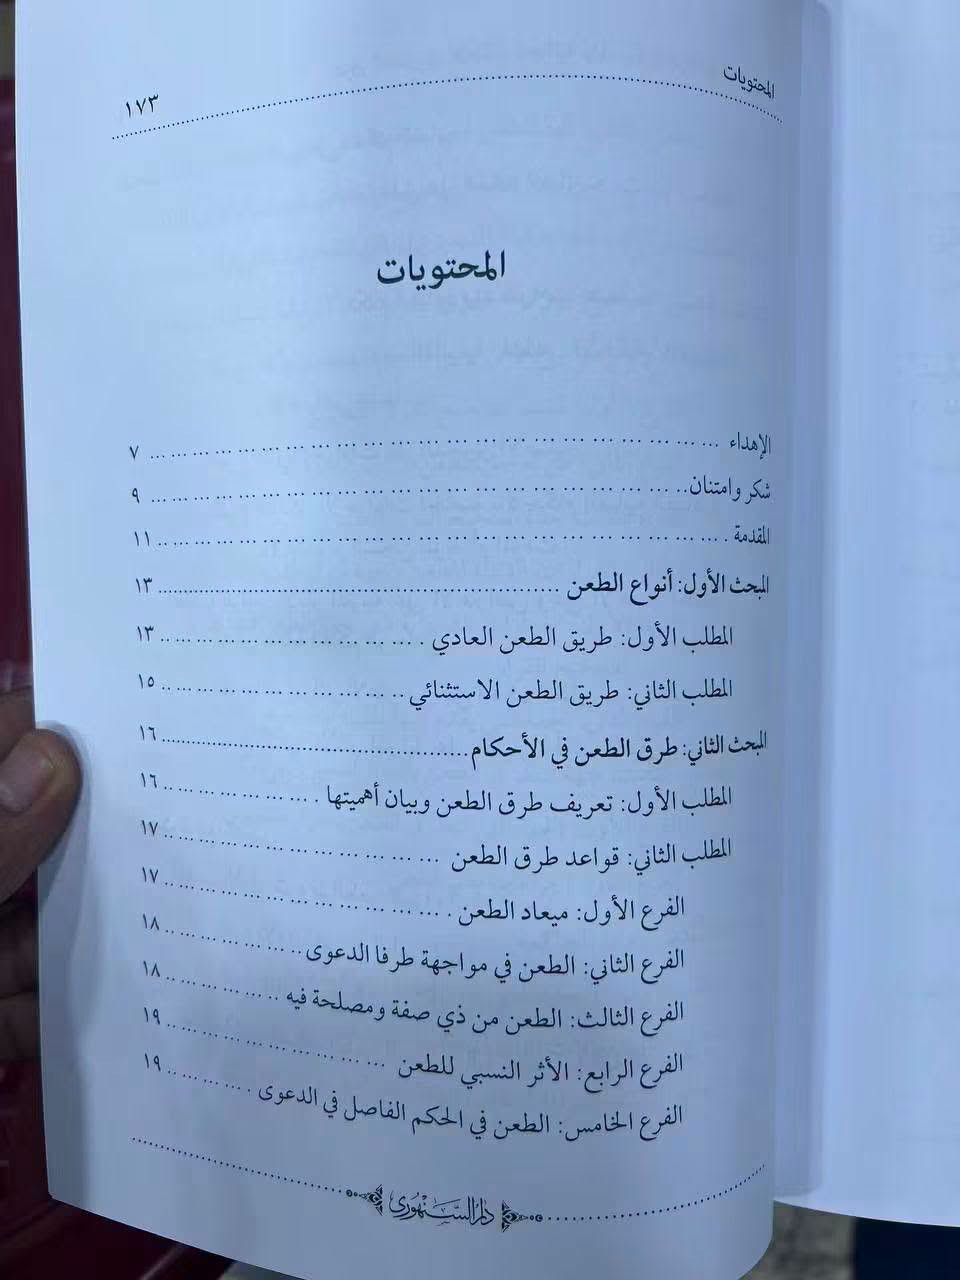 المحتويات ١٧٣
المحتويات
الإهداء ... ٧
شكر وامتنان ... ٩
المقدمة ... ١١
المبحث الأول: أنواع الطعن ... ١٣
المطلب الأول: طريق الطعن العادي ... ١٣
المطلب الثاني: طريق الطعن الاستثنائي ... ١٥
المبحث الثاني: طرق الطعن في الأحكام ... ١٦
المطلب الأول: تعريف طرق الطعن وبيان أهميتها ... ١٦
المطلب الثاني: قواعد طرق الطعن ... ١٧
الفرع الأول: ميعاد الطعن ... ١٧
الفرع الثاني: الطعن في مواجهة طرفا الدعوى ... ١٨
الفرع الثالث: الطعن من ذي صفة ومصلحة فيه ... ١٨
الفرع الرابع: الأثر النسبي للطعن ... ١٩
الفرع الخامس: الطعن في الحكم الفاصل في الدعوى ... ١٩
دار السنهوري